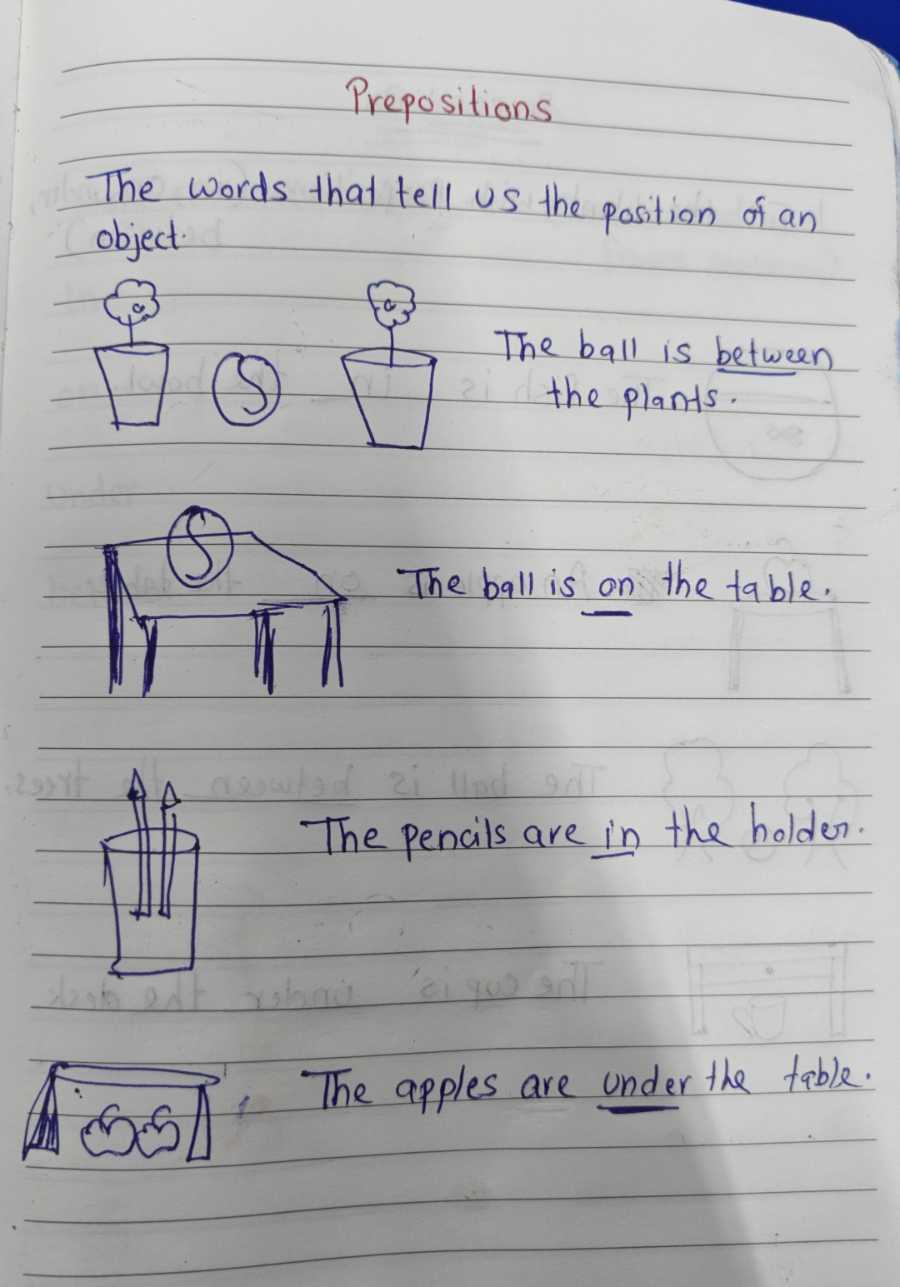 Prepositions
The words that tell us the position of an
object.
The ball is between
the plants.
The ball is on the table.
The pencils are in the holder.
The apples are under the table.